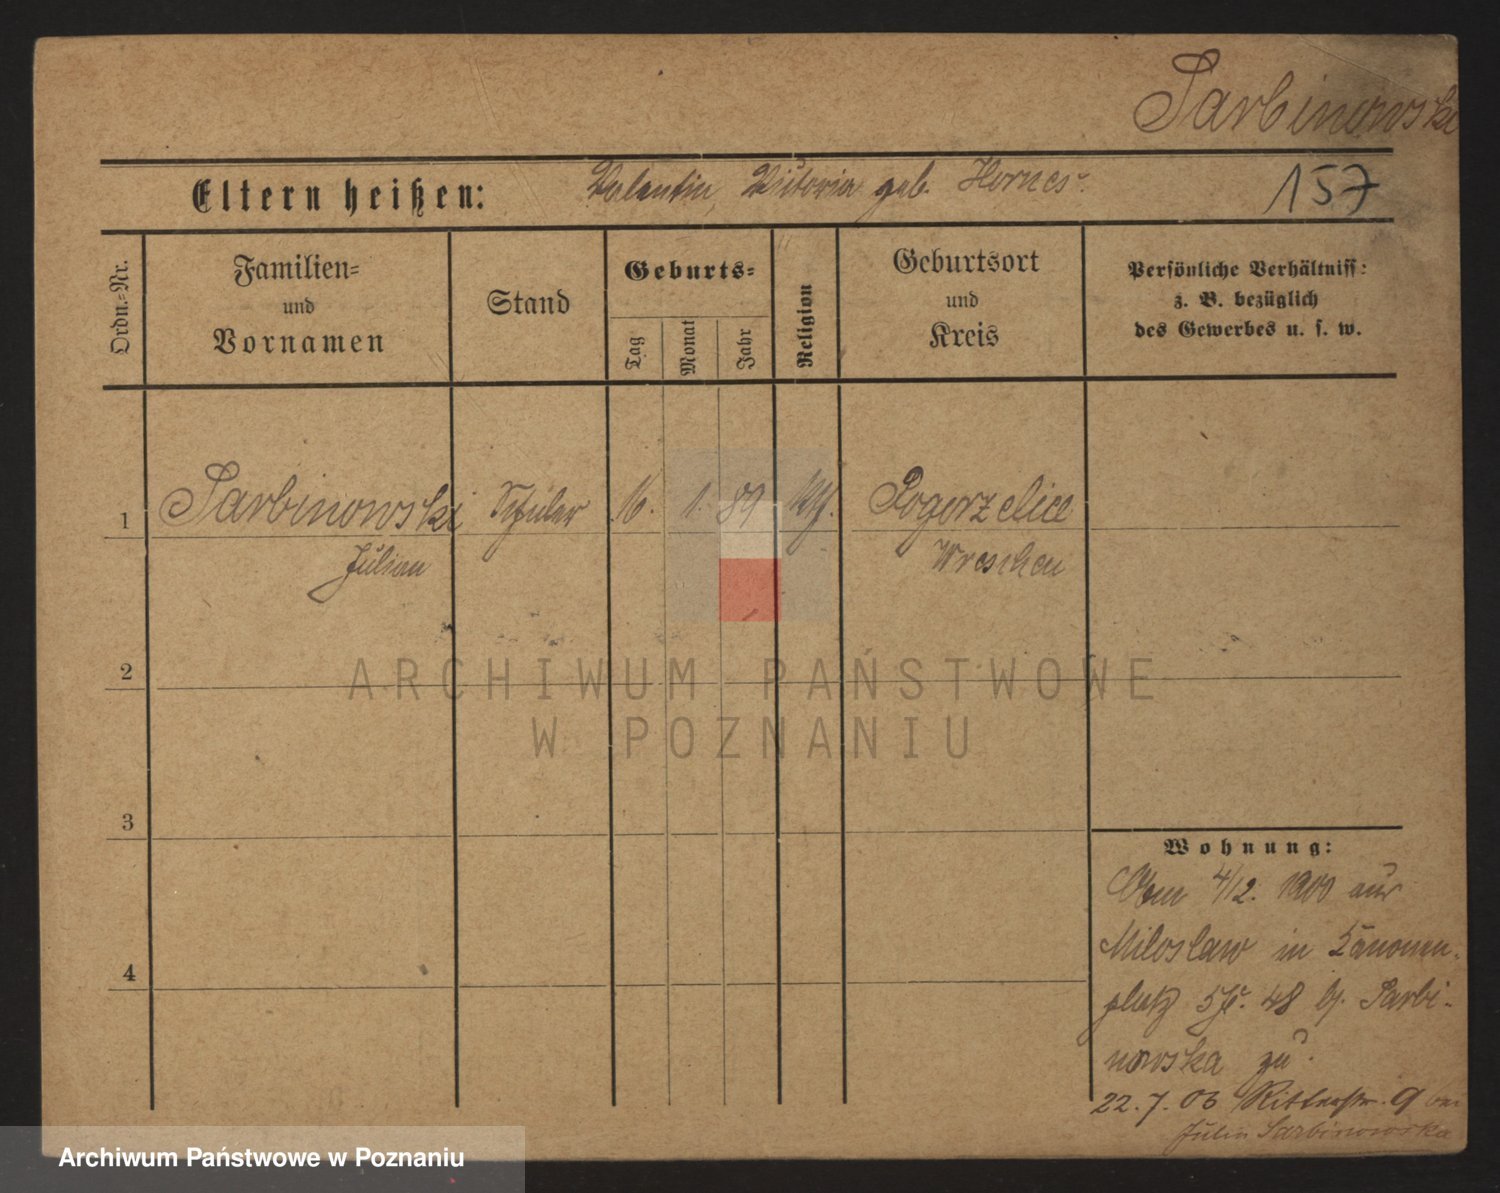 Sarbinowski
Eltern heißen: Valentin, Victoria geb.
157
Ordn.-Nr.
Familien-
und
Vornamen
Stand
Geburts-
Tag
Monat
Jahr
Religion
Geburtsort
und
Kreis
Persönliche Verhältniss:
z. B. bezüglich
des Gewerbes u. s. w.
1 Sarbinowski Schüler 16. 1. 89 Pogorzelice
Julian Wreschen
2
3
4
Wohnung:
4/12. 1900 aus
Miloslaw in
platz 48 b. Sarbi-
nowska zu.
22. 7. 03 Ritterstr. 9 bei
Sarbinowska
ARCHIWUM PAŃSTWOWE
W POZNANIU
Archiwum Państwowe w Poznaniu